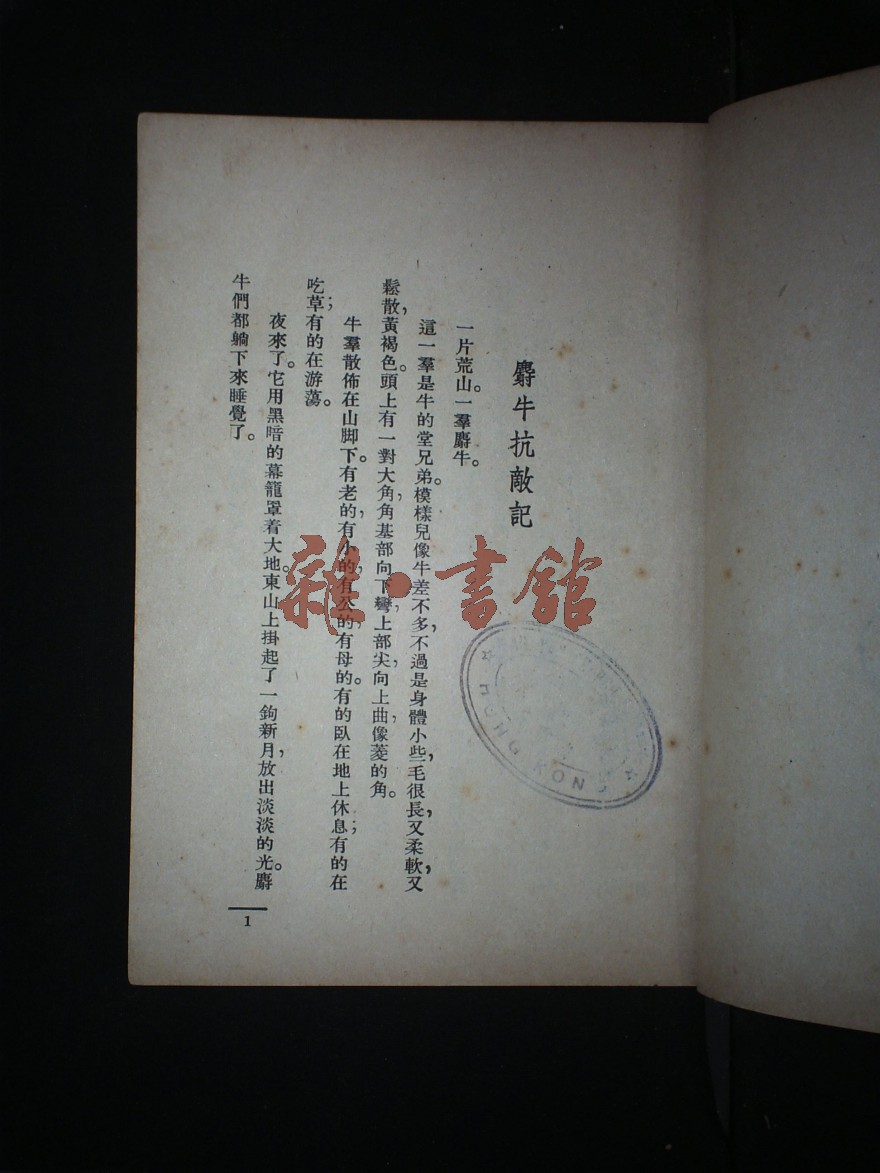 麝牛抗敵記
一片荒山。一羣麝牛。
這一羣是牛的堂兄弟。模樣兒像牛差不多，不過是身體小些，毛很長，又柔軟，又
鬆散，黃褐色。頭上有一對大角，角基部向下彎，上部尖向上曲，像菱的角。
牛羣散佈在山脚下。有老的，有小的，有公的，有母的。有的臥在地上休息；有的在
吃草；有的在游蕩。
夜來了。它用黑暗的幕籠罩着大地。東山上掛起了一鈎新月，放出淡淡的光。麝
牛們都躺下來睡覺了。
1
雜·書館
HONG KONG